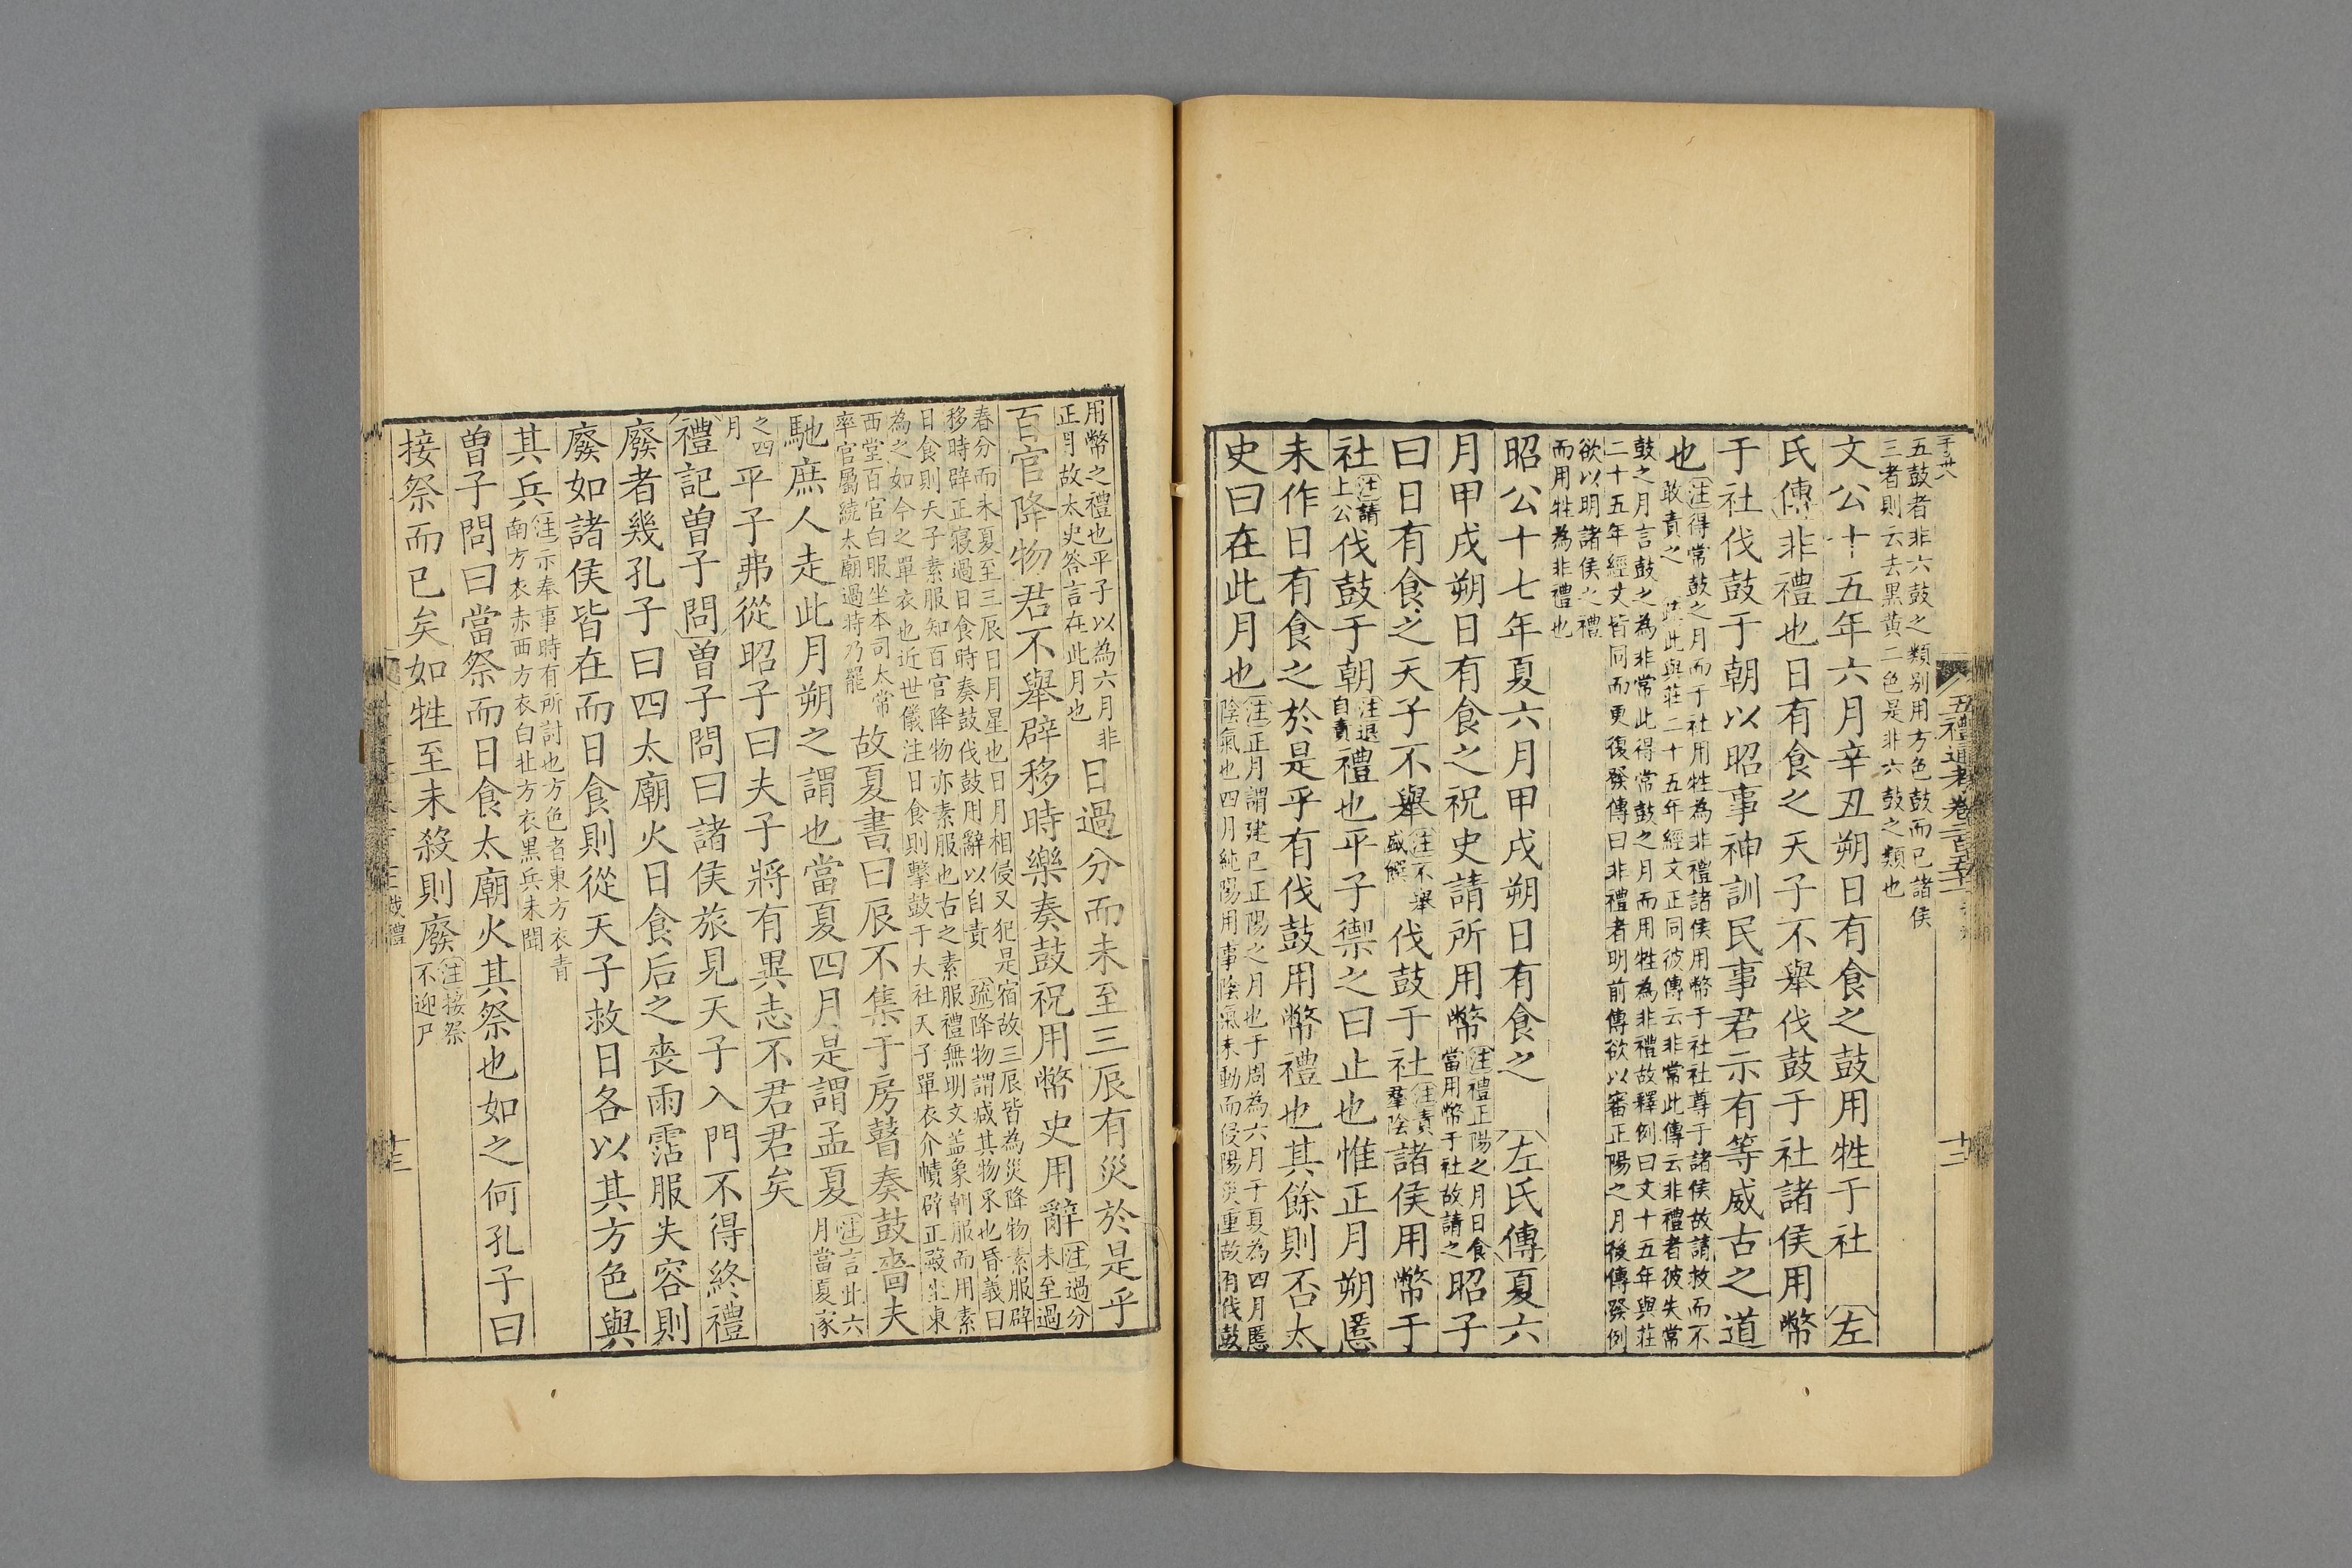 五禮通考卷二百五十二
十二
五鼓者非六鼓之類别用方色鼓而已諸侯
三者則云去黑黄二色是非六鼓之類也
文公十五年六月辛丑朔日有食之鼓用牲于社 左
氏傳非禮也日有食之天子不舉伐鼓于社諸侯用幣
于社伐鼓于朝以昭事神訓民事君示有等威古之道
也 注得常鼓之月而于社用牲為非禮諸侯用幣于社社尊于諸侯故請救而不
敢責之 疏此與莊二十五年經文正同彼傳云非常此傳云非禮者彼失常
鼓之月言鼓之為非常此得常鼓之月而用牲為非禮故釋例曰文十五年與莊
二十五年經文皆同而更復發傳曰非禮者明前傳欲以審正陽之月後傳發例
欲以明諸侯之禮
而用牲為非禮也
昭公十七年夏六月甲戌朔日有食之 左氏傳夏六
月甲戌朔日有食之祝史請所用幣 注禮正陽之月日食當用幣于社故請之 昭子
曰日有食之天子不舉 注不舉盛饌 伐鼓于社 注責羣陰 諸侯用幣于
社 注請上公 伐鼓于朝 注退自責 禮也平子禦之曰止也惟正月朔慝
未作日有食之於是乎有伐鼓用幣禮也其餘則否太
史曰在此月也 注正月謂建巳正陽之月也于周為六月于夏為四月慝
陰氣也四月純陽用事陰氣未動而侵陽災重故有伐鼓
用幣之禮也平子以為六月非
正月故太史答言在此月也 日過分而未至三辰有災於是乎
百官降物君不舉辟移時樂奏鼓祝用幣史用辭 注過分未至過
春分而未夏至三辰日月星也日月相侵又犯是宿故三辰皆為災降物素服辟
移時辟正寢過日食時奏鼓伐鼓用辭以自責 疏降物謂減其物采也昏義曰
日食則天子素服知百官降物亦素服也古之素服禮無明文盖象朝服而用素
為之如今之單衣也近世儀注日食則擊鼓于大社天子單衣介幘辟正殿坐東
西堂百官白服坐本司太常
率官屬繞太廟過時乃罷 故夏書曰辰不集于房瞽奏鼓嗇夫
馳庶人走此月朔之謂也當夏四月是謂孟夏 注言此六月當夏家
之四月 平子弗從昭子曰夫子將有異志不君君矣
禮記曽子問曽子問曰諸侯旅見天子入門不得終禮
廢者幾孔子曰四太廟火日食后之喪雨霑服失容則
廢如諸侯皆在而日食則從天子救日各以其方色與
其兵 注示奉事時有所討也方色者東方衣青
南方衣赤西方衣白北方衣黑兵未聞
曽子問曰當祭而日食太廟火其祭也如之何孔子曰
接祭而已矣如牲至未殺則廢 注接祭不迎尸
十三